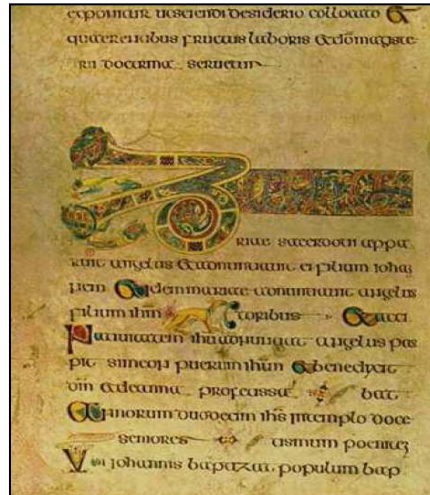 exponatur utsciendi desiderio collocato &
quaerentibus fructus laboris & dōi magiste
rii doctrina seruetur
Z
riae sacerdoti appa
ruit angelus & adnuntiauit ei filium Ioha
nem & idem mariae adnuntiauit angelus
filium ihm toribus & acci
Natiuitatem ihu adnuntiat angelus pas
pit simeon puerum ihm & benedicit
dm & deanna professa bat
& annorum duodecim ihs intemplo doce
seniores tismum poenitaz
Vbi iohannis babtizat populum bap